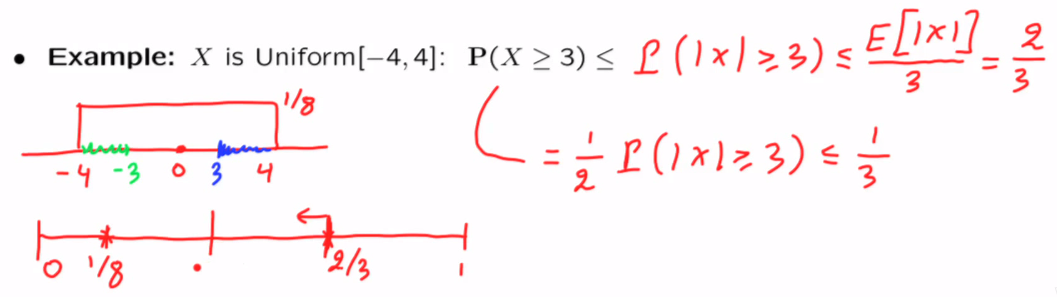 • Example: X is Uniform[−4, 4]: P(X ≥ 3) ≤ P(|X| ≥ 3) ≤ E[|X|]/3 = 2/3
= 1/2 P(|X| ≥ 3) ≤ 1/3
1/8
-4 -3 0 3 4
0 1/8 2/3 1